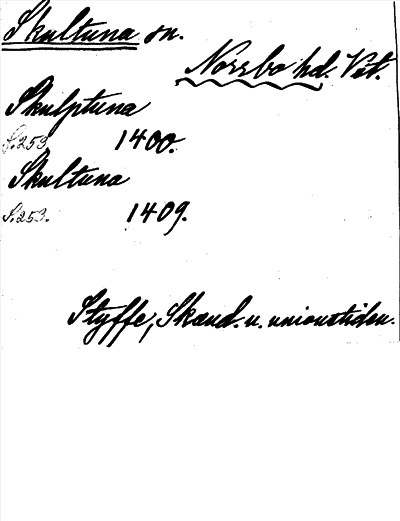 Skultuna sn.
Norrbo hd. Vst.
Skulptuna
S.253. 1400.
Skultuna
S.253. 1409.
Styffe, Skand. u. unionstiden.